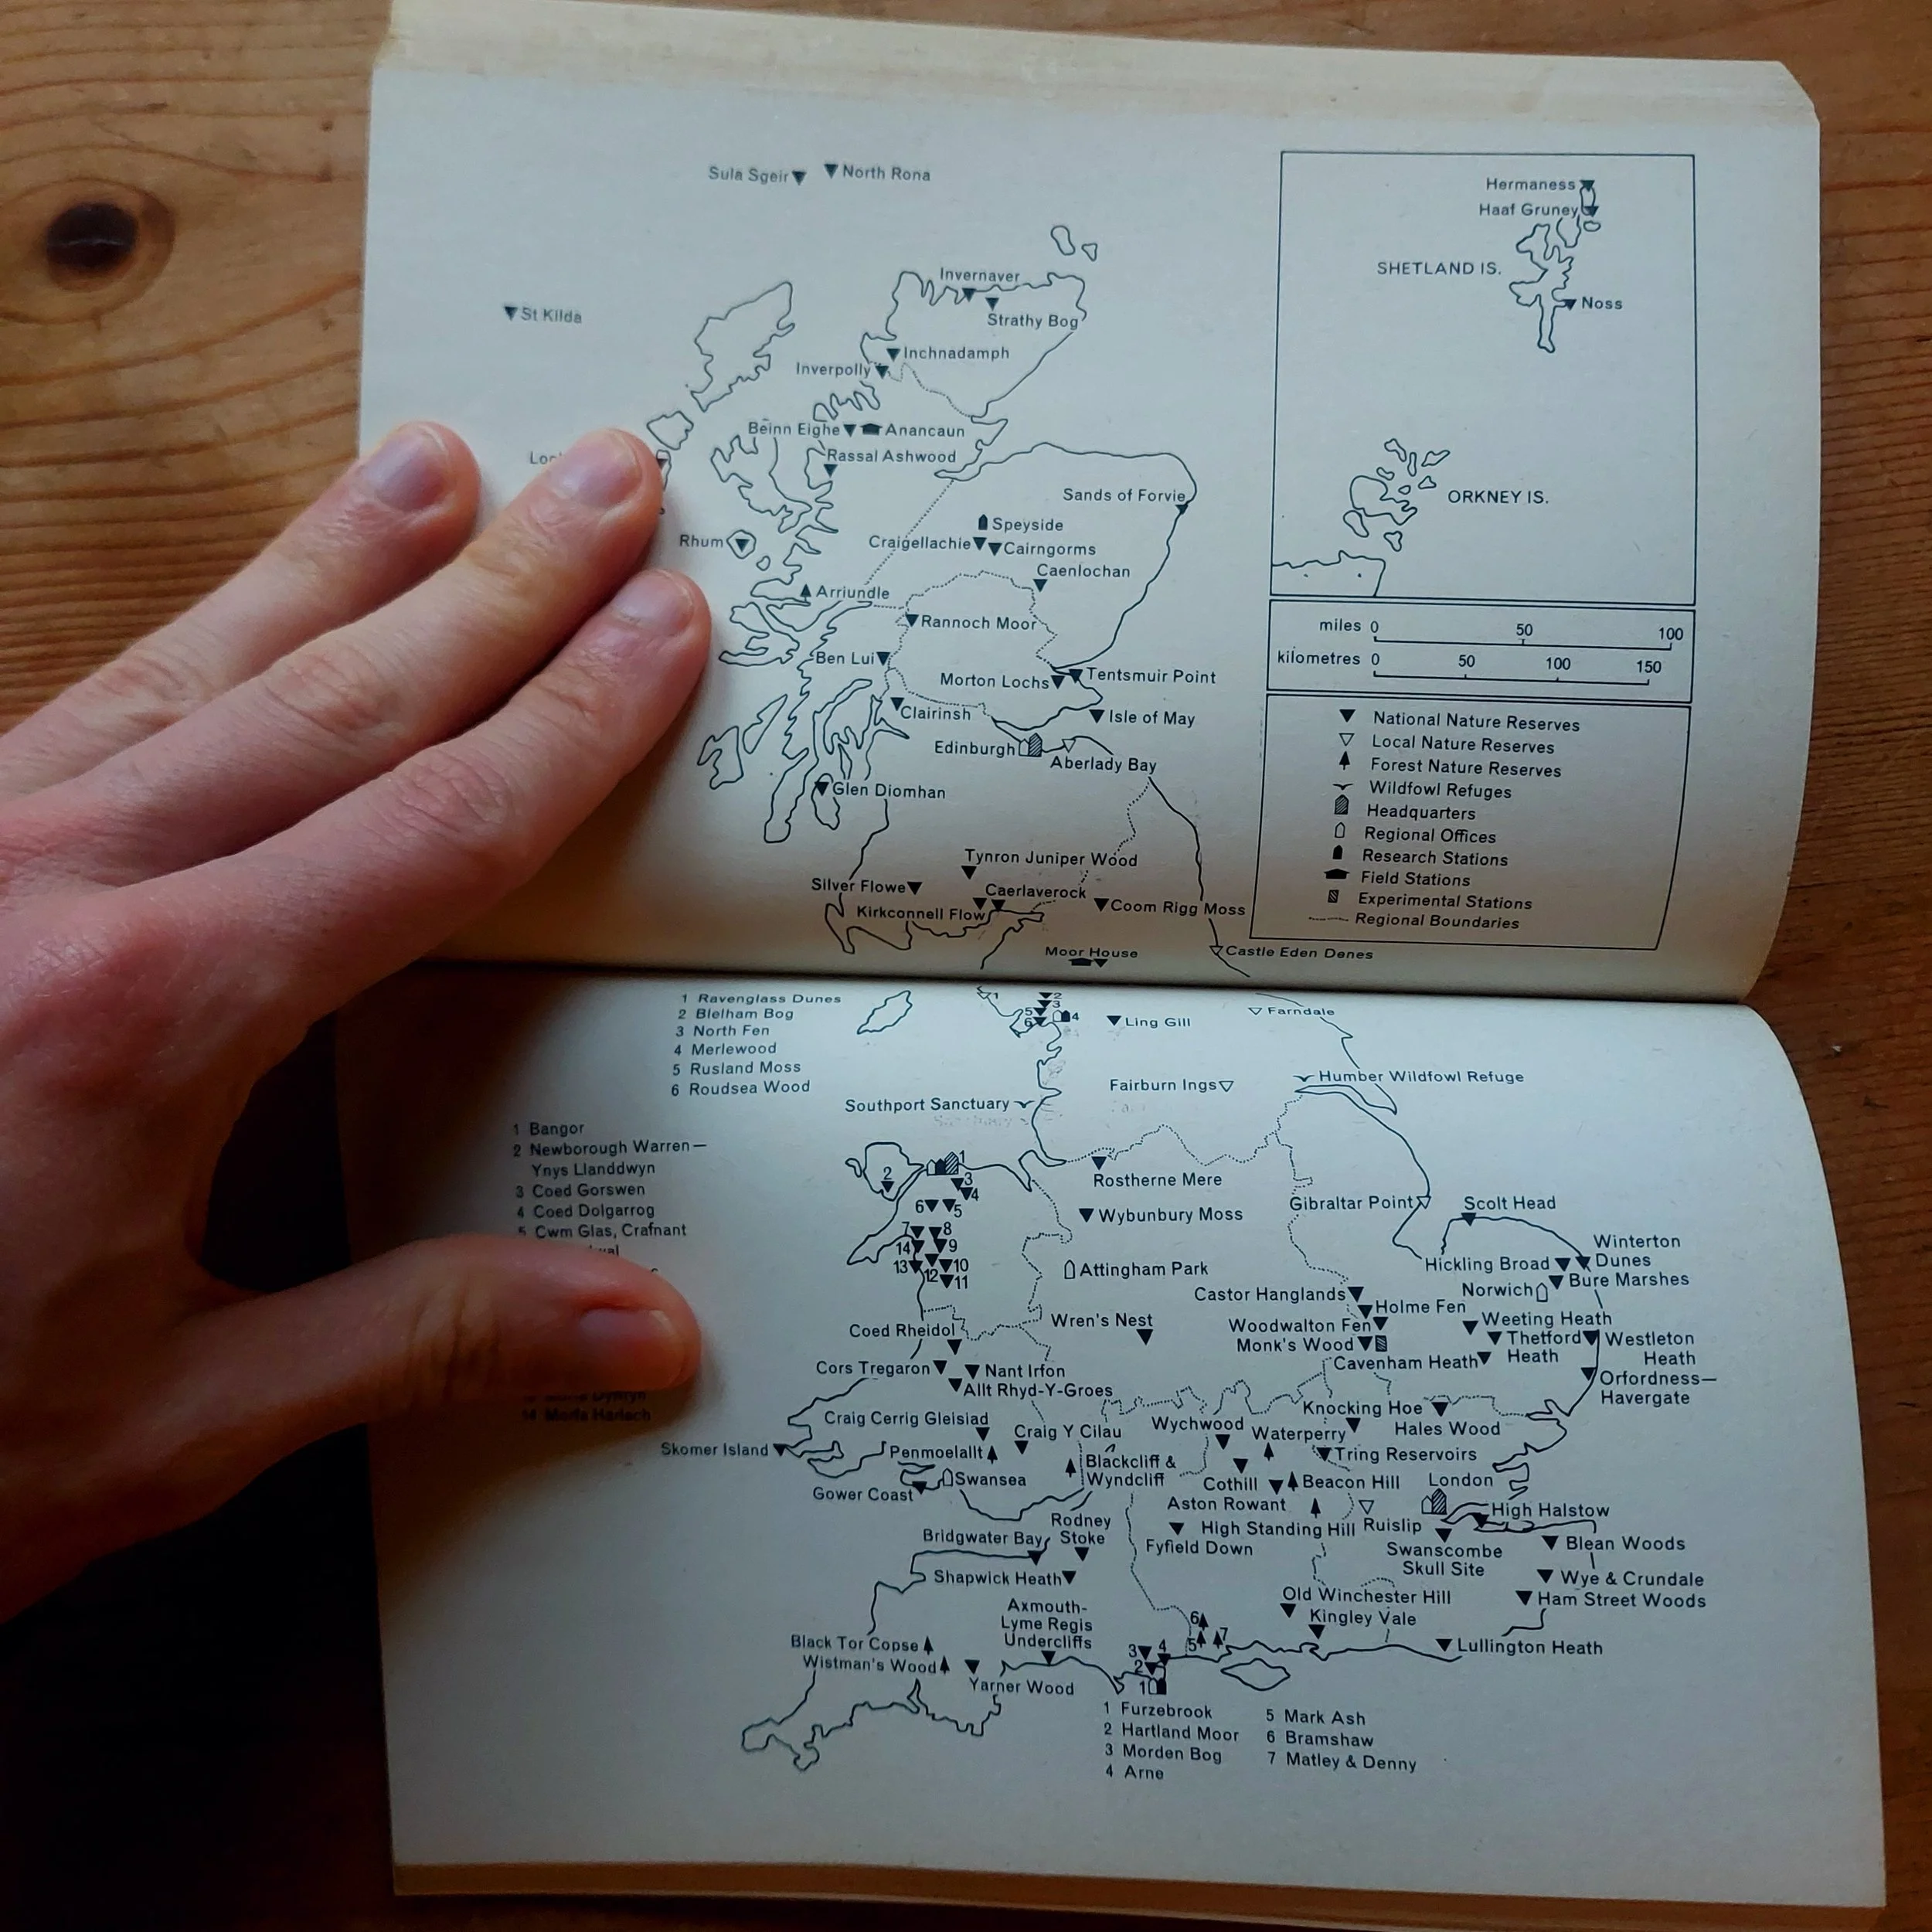 Sula Sgeir
North Rona
Hermaness
Haaf Gruney
SHETLAND IS.
Noss
Invernaver
St Kilda
Strathy Bog
Inchnadamph
Inverpolly
Beinn Eighe
Anancaun
Rassal Ashwood
Sands of Forvie
ORKNEY IS.
Speyside
Rhum
Craigellachie
Cairngorms
Caenlochan
Arriundle
Rannoch Moor
miles 0 50 100
kilometres 0 50 100 150
Ben Lui
Morton Lochs
Tentsmuir Point
Clairinsh
Isle of May
Edinburgh
Aberlady Bay
Glen Diomhan
National Nature Reserves
Local Nature Reserves
Forest Nature Reserves
Wildfowl Refuges
Headquarters
Regional Offices
Research Stations
Field Stations
Experimental Stations
Regional Boundaries
Tynron Juniper Wood
Silver Flowe
Caerlaverock
Kirkconnell Flow
Coom Rigg Moss
Moor House
Castle Eden Denes
1 Ravenglass Dunes
2 Blelham Bog
3 North Fen
4 Merlewood
5 Rusland Moss
6 Roudsea Wood
1
2
3
5
4
6
Ling Gill
Farndale
Fairburn Ings
Humber Wildfowl Refuge
Southport Sanctuary
1 Bangor
2 Newborough Warren—
Ynys Llanddwyn
3 Coed Gorswen
4 Coed Dolgarrog
5 Cwm Glas, Crafnant
14 Morfa Harlech
1
2
3
4
6
5
7
8
14
9
13
12
10
11
Rostherne Mere
Wybunbury Moss
Gibraltar Point
Scolt Head
Attingham Park
Hickling Broad
Winterton
Dunes
Norwich
Bure Marshes
Castor Hanglands
Holme Fen
Coed Rheidol
Wren's Nest
Woodwalton Fen
Weeting Heath
Monk's Wood
Thetford
Heath
Westleton
Heath
Cavenham Heath
Cors Tregaron
Nant Irfon
Allt Rhyd-Y-Groes
Orfordness—
Havergate
Craig Cerrig Gleisiad
Craig Y Cilau
Wychwood
Knocking Hoe
Waterperry
Hales Wood
Skomer Island
Penmoelallt
Blackcliff &
Wyndcliff
Tring Reservoirs
Swansea
Gower Coast
Cothill
Beacon Hill
London
Aston Rowant
High Halstow
Rodney
Stoke
High Standing Hill
Ruislip
Bridgwater Bay
Fyfield Down
Swanscombe
Skull Site
Blean Woods
Shapwick Heath
Wye & Crundale
Old Winchester Hill
Ham Street Woods
Axmouth-
Lyme Regis
Undercliffs
Kingley Vale
Black Tor Copse
Wistman's Wood
Lullington Heath
Yarner Wood
6
5
7
3
4
2
1
1 Furzebrook
2 Hartland Moor
3 Morden Bog
4 Arne
5 Mark Ash
6 Bramshaw
7 Matley & Denny